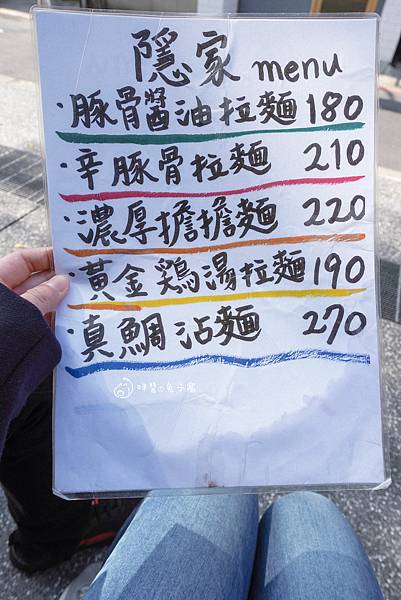 隱家 menu
·豚骨醬油拉麵 180
·辛豚骨拉麵 210
·濃厚擔擔麵 220
·黃金鶏湯拉麵 190
·真鯛沾麵 270